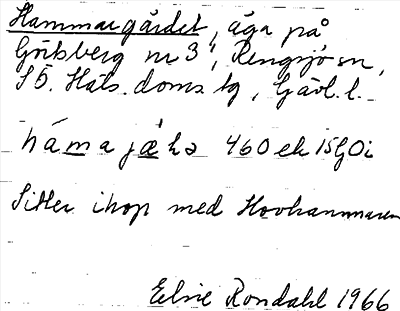 Hammargärdet, äga på
Götsberg nr 3, Rengsjö sn,
S Ö. Häls. doms tg, Gävl. l.
håmajæḷə 460 ek 15GOi
Sitter ihop med Hovhammaren
Elsie Rondahl 1966